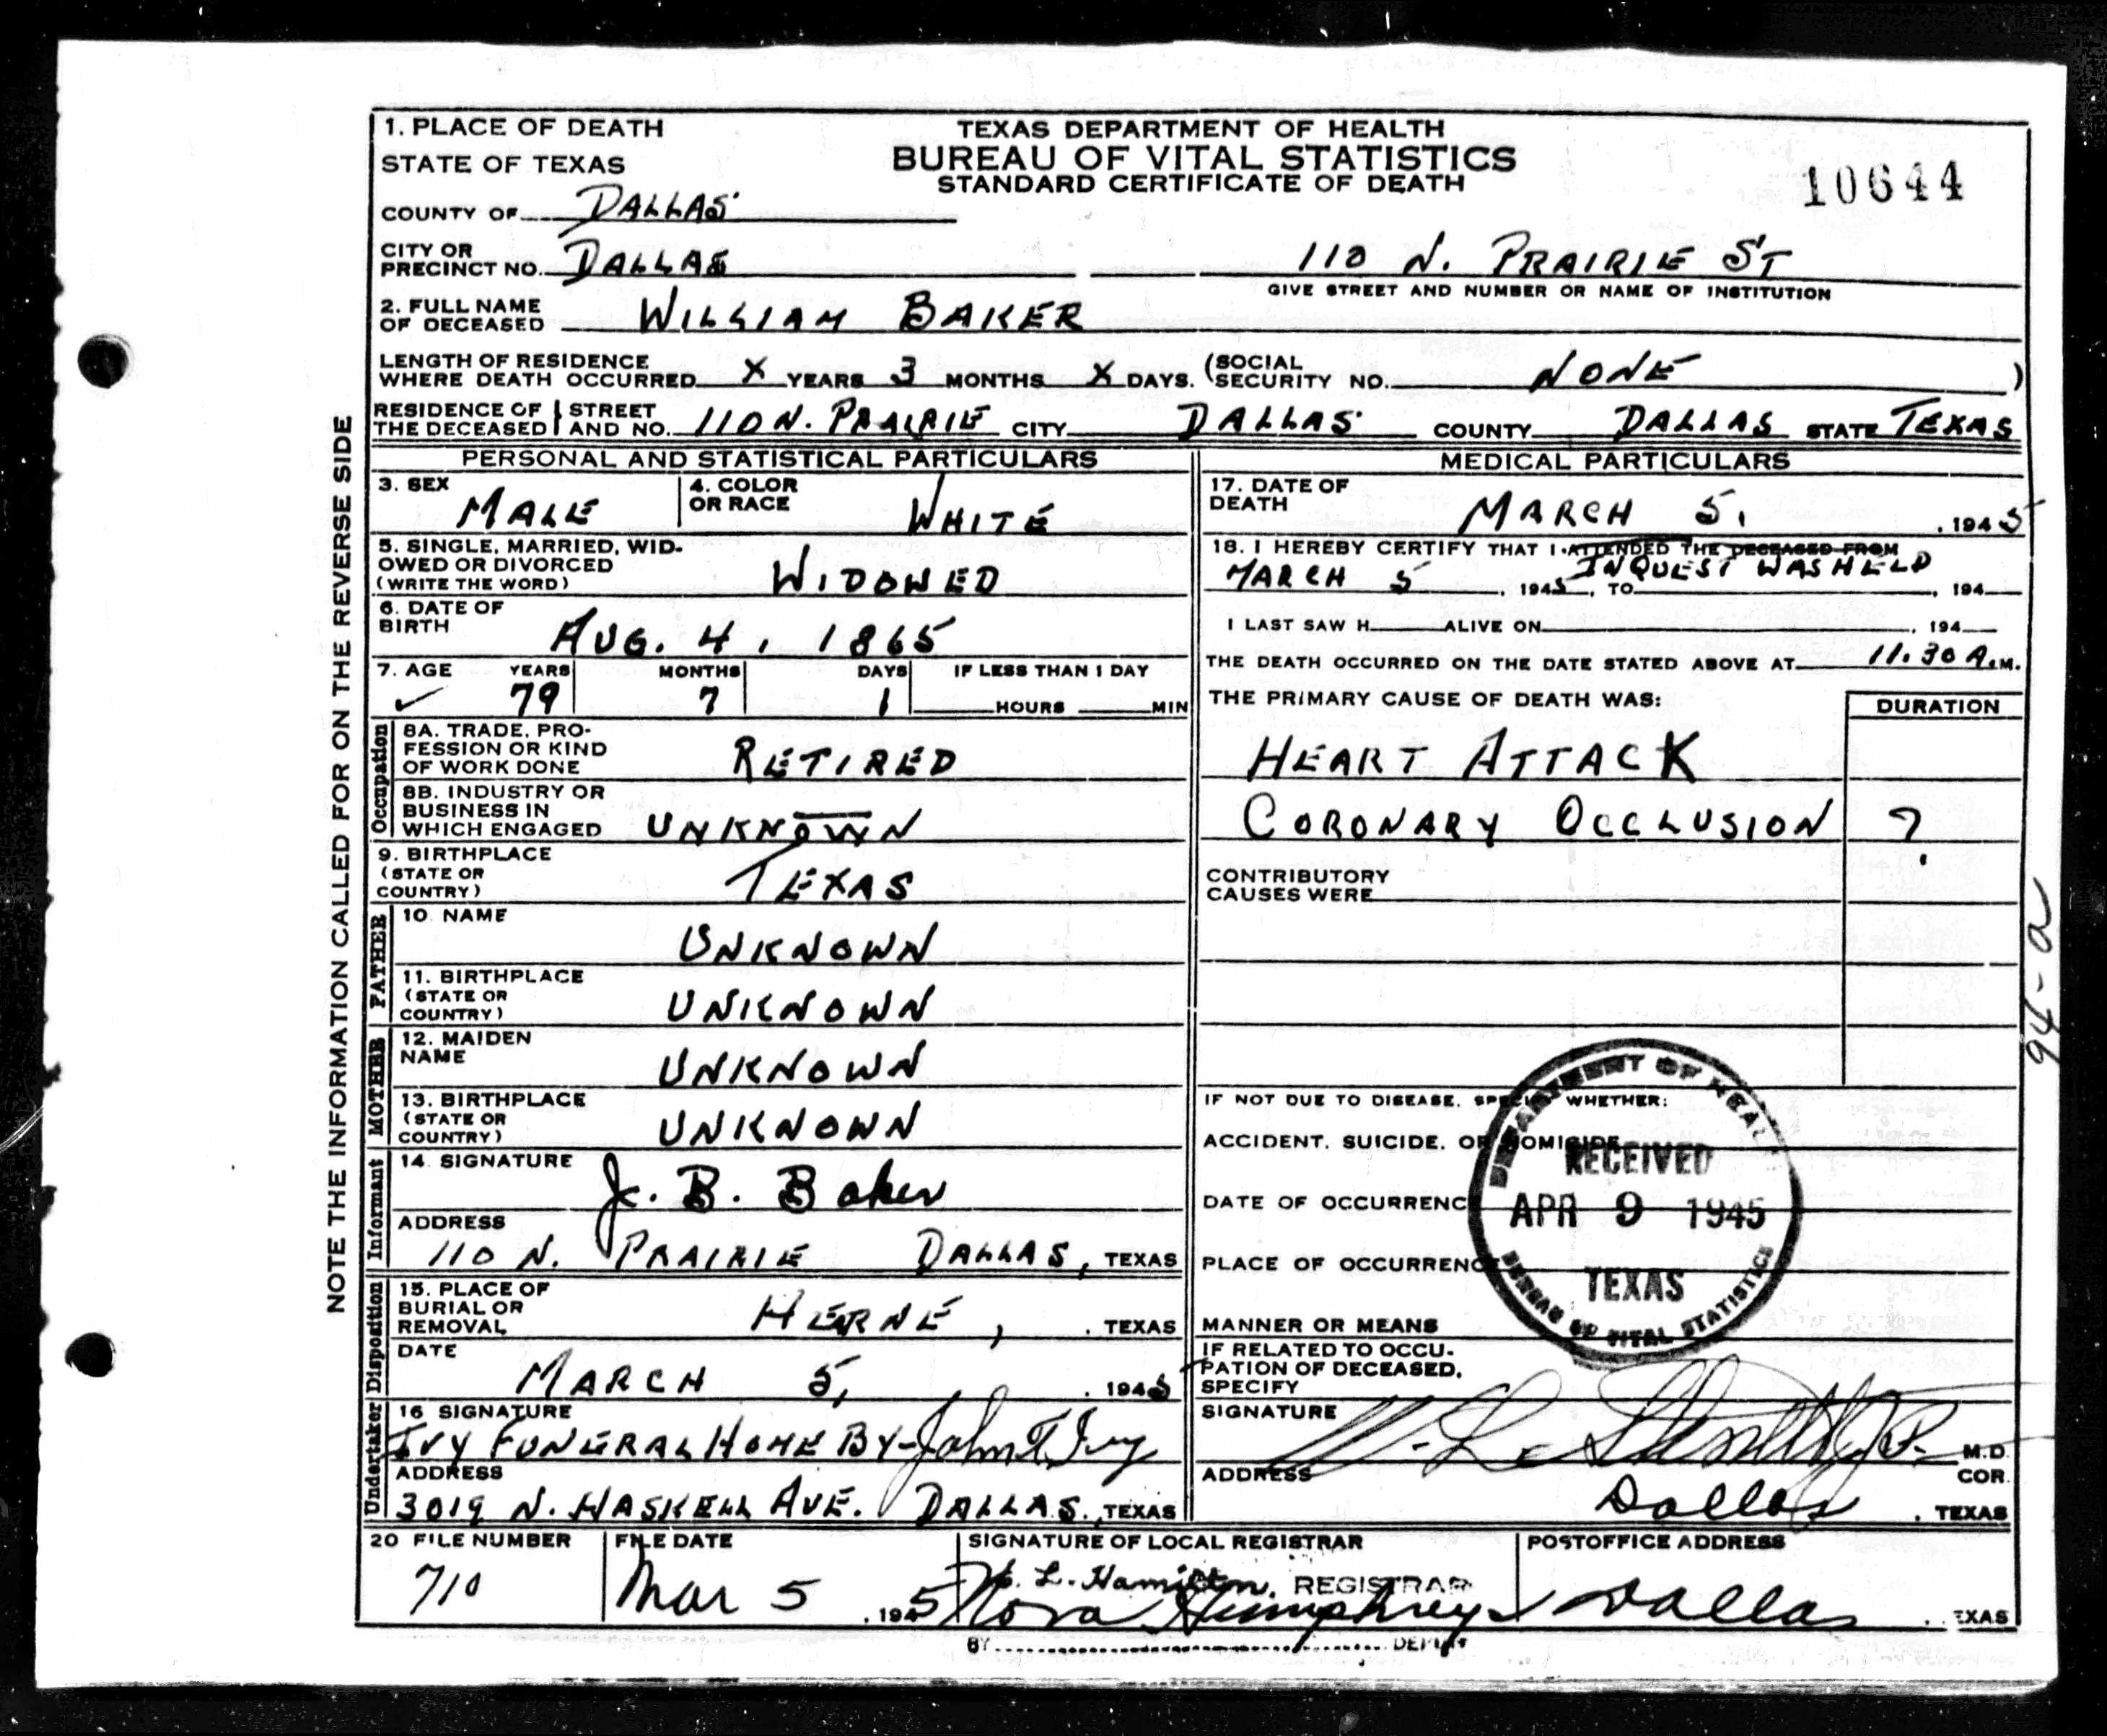 1. PLACE OF DEATH
STATE OF TEXAS
COUNTY OF DALLAS
TEXAS DEPARTMENT OF HEALTH
BUREAU OF VITAL STATISTICS
STANDARD CERTIFICATE OF DEATH
10644
CITY OR
PRECINCT NO. DALLAS
110 N. PRAIRIE ST
GIVE STREET AND NUMBER OR NAME OF INSTITUTION
2. FULL NAME
OF DECEASED WILLIAM BAKER
LENGTH OF RESIDENCE
WHERE DEATH OCCURRED X YEARS 3 MONTHS X DAYS. (SOCIAL SECURITY NO. NONE )
RESIDENCE OF THE DECEASED STREET AND NO. 110 N. PRAIRIE CITY DALLAS COUNTY DALLAS STATE TEXAS
NOTE THE INFORMATION CALLED FOR ON THE REVERSE SIDE
PERSONAL AND STATISTICAL PARTICULARS
3. SEX MALE
4. COLOR OR RACE WHITE
5. SINGLE, MARRIED, WID-
OWED OR DIVORCED
(WRITE THE WORD) WIDOWED
6. DATE OF
BIRTH AUG. 4, 1865
7. AGE YEARS MONTHS DAYS IF LESS THAN 1 DAY
✓ 79 7 1 HOURS MIN
Occupation
8A. TRADE, PRO-
FESSION OR KIND
OF WORK DONE RETIRED
8B. INDUSTRY OR
BUSINESS IN
WHICH ENGAGED UNKNOWN
9. BIRTHPLACE
(STATE OR
COUNTRY) TEXAS
FATHER
10. NAME UNKNOWN
11. BIRTHPLACE
(STATE OR
COUNTRY) UNKNOWN
MOTHER
12. MAIDEN
NAME UNKNOWN
13. BIRTHPLACE
(STATE OR
COUNTRY) UNKNOWN
Informant
14. SIGNATURE J. B. Baker
ADDRESS
110 N. PRAIRIE DALLAS, TEXAS
Disposition
15. PLACE OF
BURIAL OR
REMOVAL HERNE, . TEXAS
DATE
MARCH 5, . 1945
Undertaker
16 SIGNATURE
IVY FUNERAL HOME BY-John T Ivy
ADDRESS
3019 N. HASKELL AVE. DALLAS. TEXAS
MEDICAL PARTICULARS
17. DATE OF
DEATH MARCH 5, . 1945
18. I HEREBY CERTIFY THAT I ATTENDED THE DECEASED FROM
INQUEST WAS HELD
MARCH 5 , 1945, TO , 194
I LAST SAW H ALIVE ON , 194
THE DEATH OCCURRED ON THE DATE STATED ABOVE AT 11.30 A.M.
THE PRIMARY CAUSE OF DEATH WAS: DURATION
HEART ATTACK
CORONARY OCCLUSION ?
CONTRIBUTORY
CAUSES WERE
94-a
IF NOT DUE TO DISEASE, SPECIFY WHETHER:
ACCIDENT, SUICIDE, OR HOMICIDE
DATE OF OCCURRENCE
PLACE OF OCCURRENCE
MANNER OR MEANS
DEPARTMENT OF HEALTH
RECEIVED
APR 9 1945
TEXAS
BUREAU OF VITAL STATISTICS
IF RELATED TO OCCU-
PATION OF DECEASED,
SPECIFY
SIGNATURE M.D.
ADDRESS COR.
Dallas . TEXAS
20 FILE NUMBER FILE DATE SIGNATURE OF LOCAL REGISTRAR POSTOFFICE ADDRESS
710 Mar 5 , 1945 L. Hamilton, REGISTRAR
Nora Humphreys Dallas . EXAS
BY DEPUTY